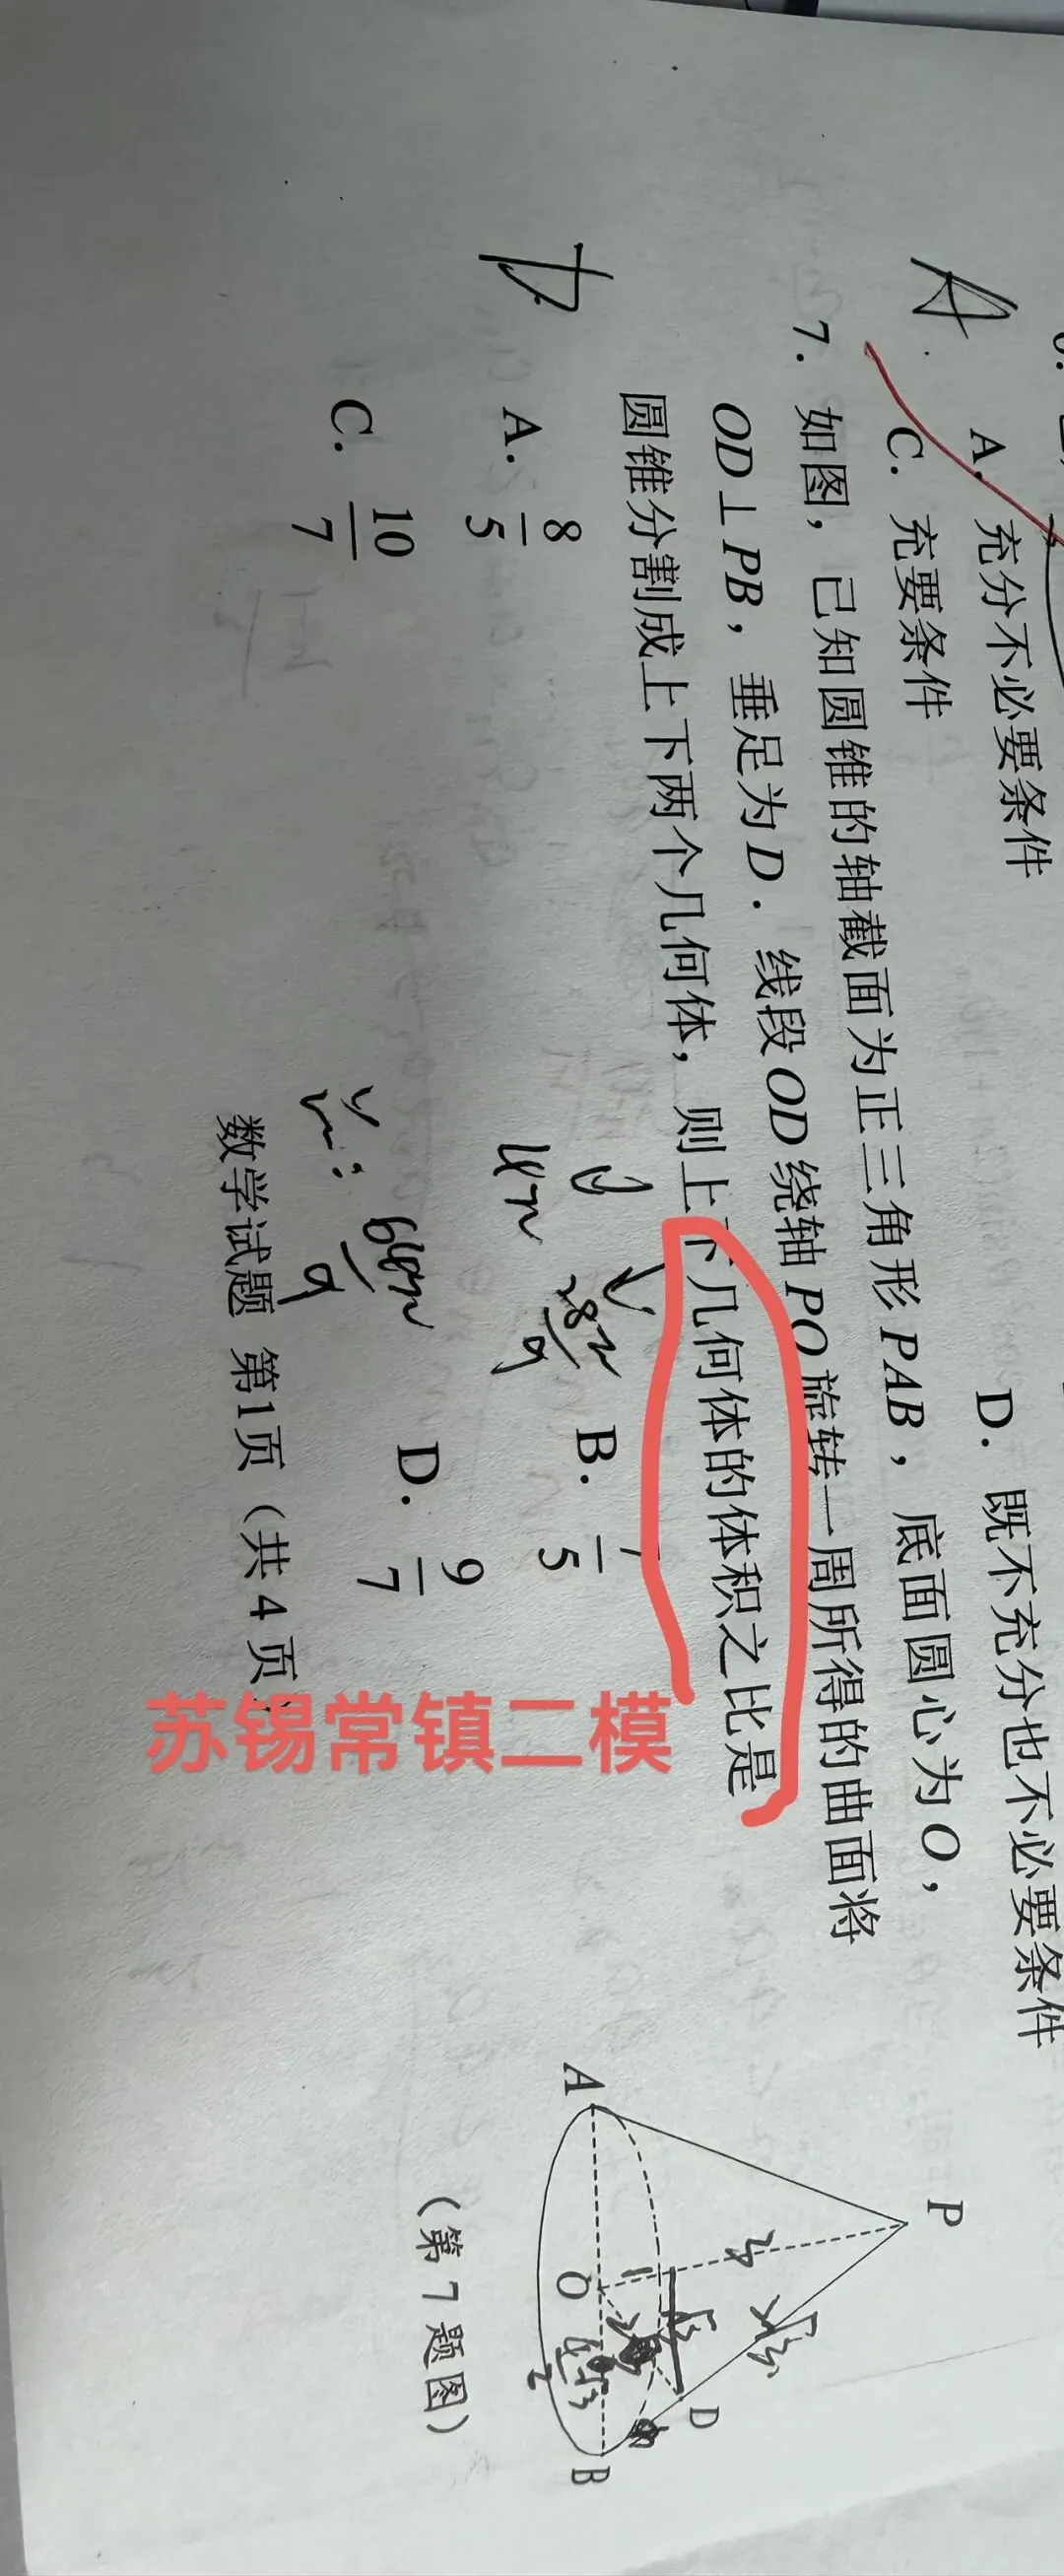 A. 充分不必要条件
D. 既不充分也不必要条件
C. 充要条件
A
7. 如图，已知圆锥的轴截面为正三角形PAB，底面圆心为O，
OD⊥PB，垂足为D. 线段OD绕轴PO旋转一周所得的曲面将
圆锥分割成上下两个几何体，则上下几何体的体积之比是
D
A. 8/5
B. 7/5
C. 10/7
D. 9/7
P
A
O
B
D
（第7题图）
数学试题 第1页（共4页
苏锡常镇二模